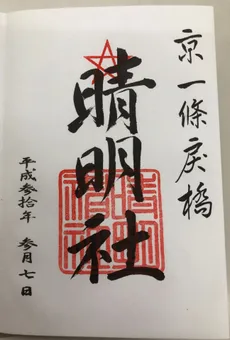 京一條戻橋
晴明社
平成参拾年 参月七日
晴明神社